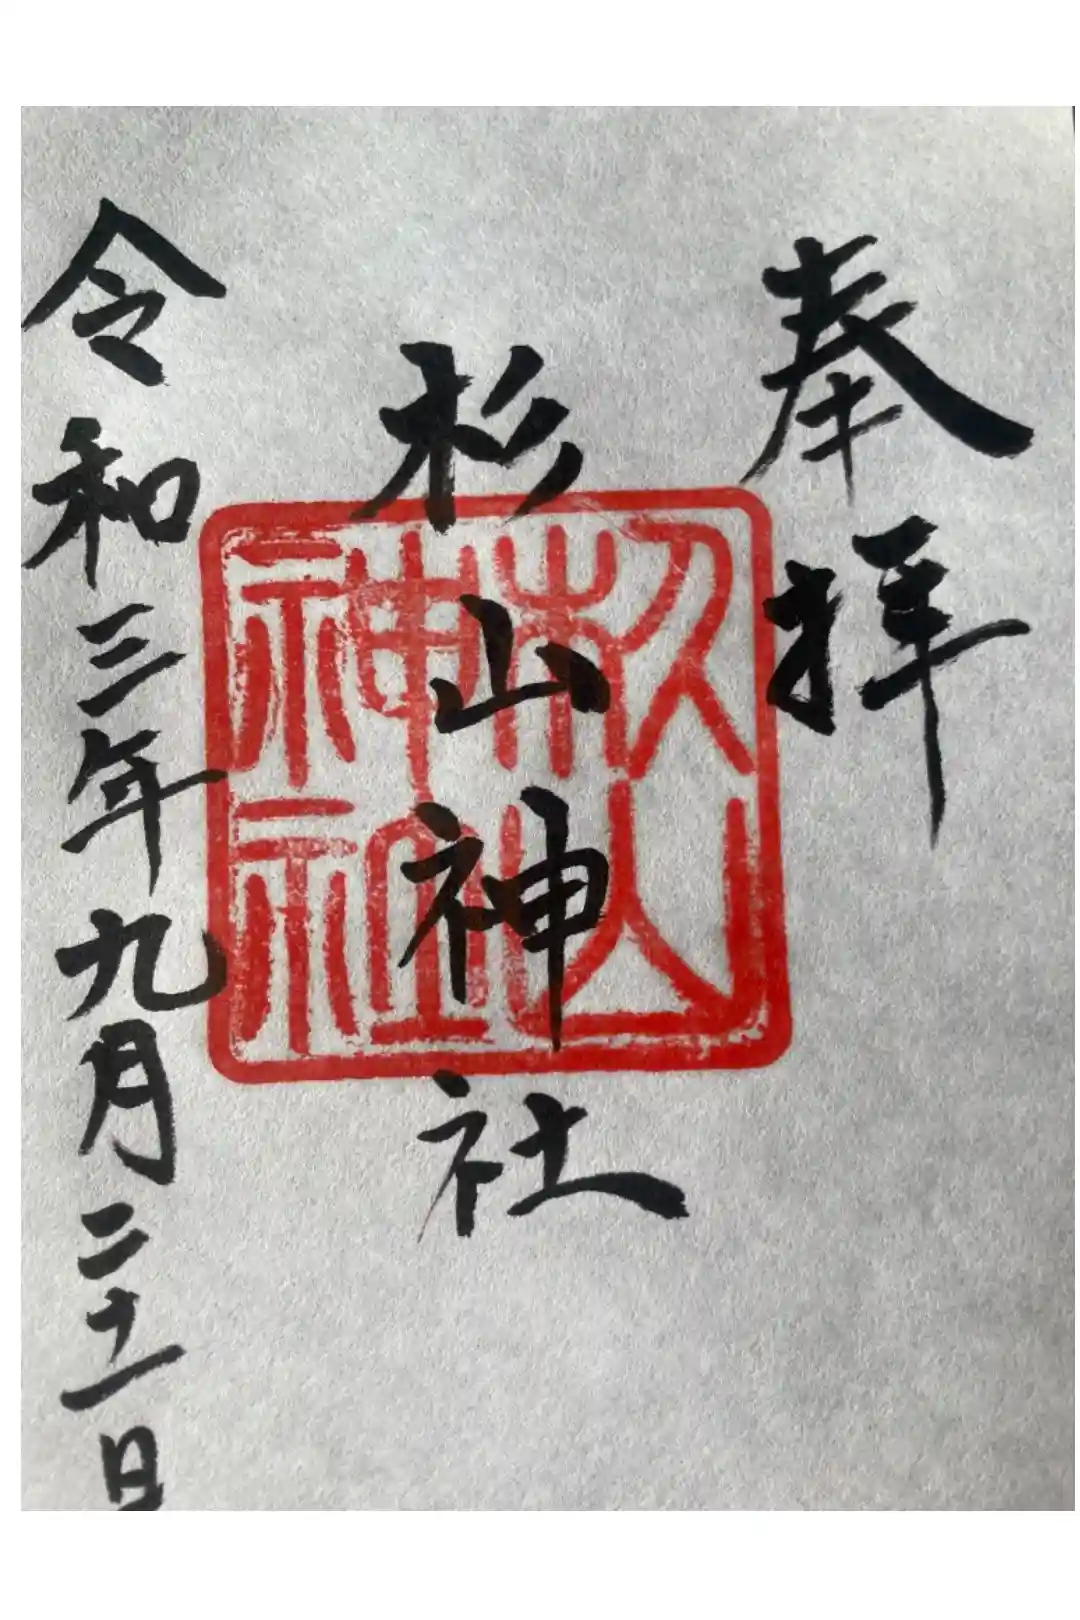 奉拝
杉山神社
令和三年九月二十一日
杉山
神社